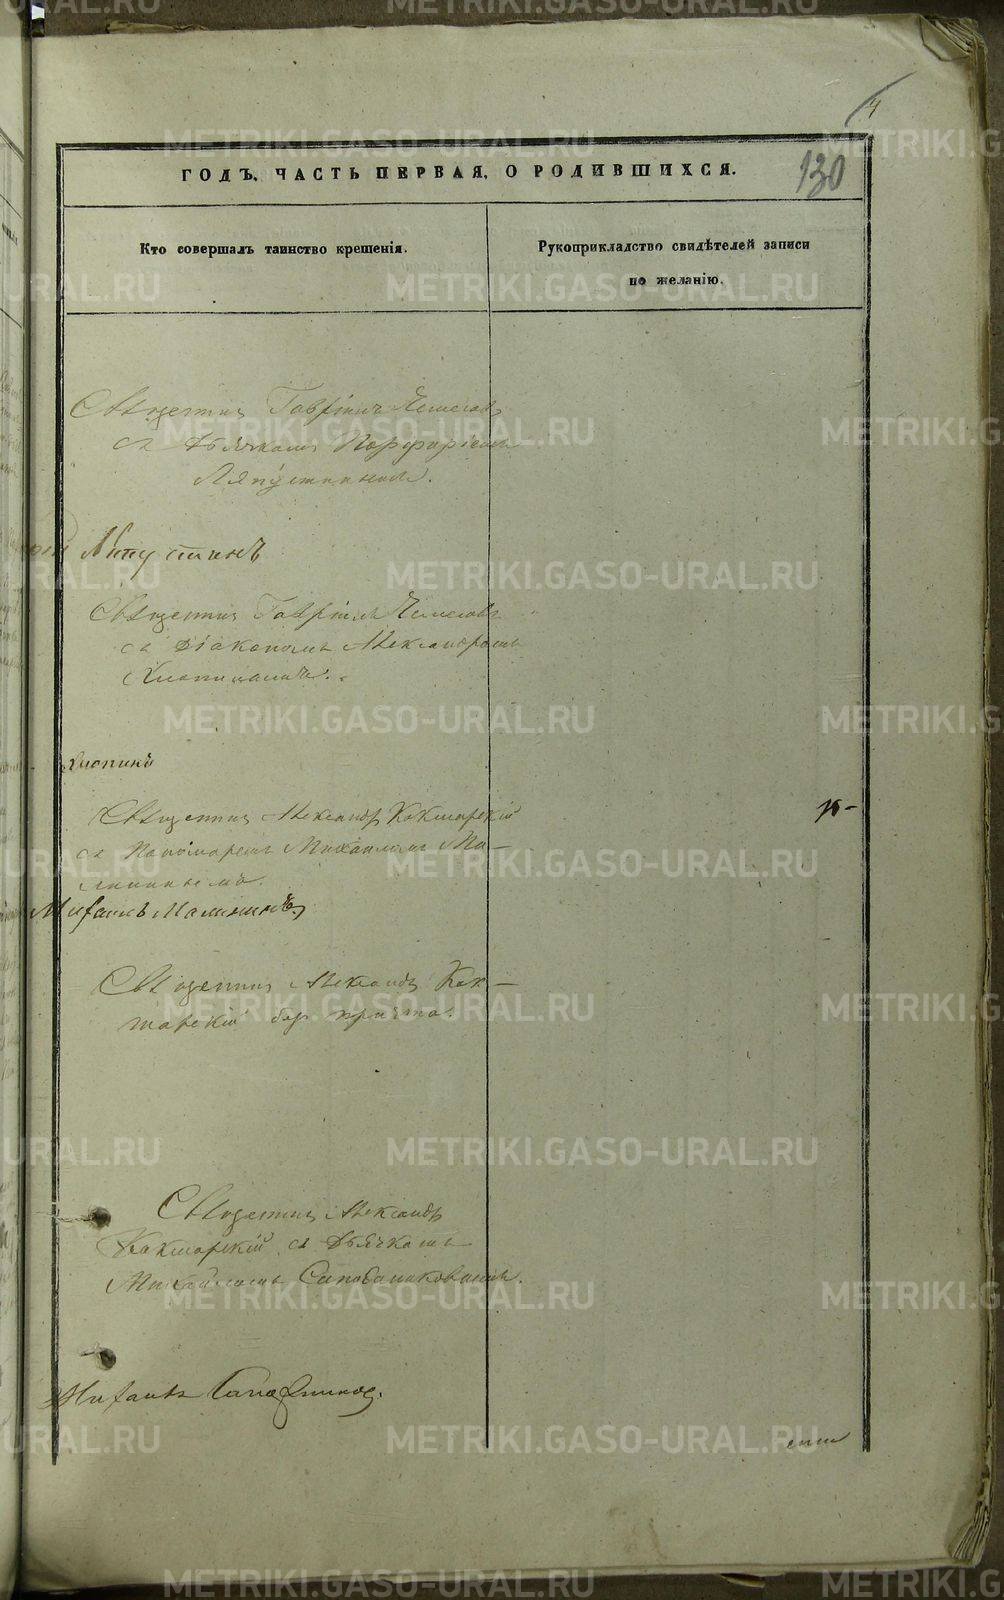 4
130
ГОДЪ, ЧАСТЬ ПЕРВАЯ, О РОДИВШИХСЯ.
Кто совершалъ таинство крещенія.
Рукоприкладство свидѣтелей записи
по желанію.
Священникъ Гавріилъ
съ Дьячкомъ Порфиріемъ
Ляпустинымъ.
Ляпустинъ
Священникъ Гавріилъ
съ Діакономъ Александромъ
Хлопинымъ.
Хлопинъ
Священникъ Александръ Кокшарскій
съ Пономаремъ Михаиломъ Ма-
линынымъ.
Михаилъ Малининъ
Священникъ Александръ Кок-
шарскій без причта.
Священникъ Александръ
Кокшарскій съ Дьячкомъ
Михаиломъ Сапожниковымъ.
Михаилъ Сапожников.
METRIKI.GASO-URAL.RU